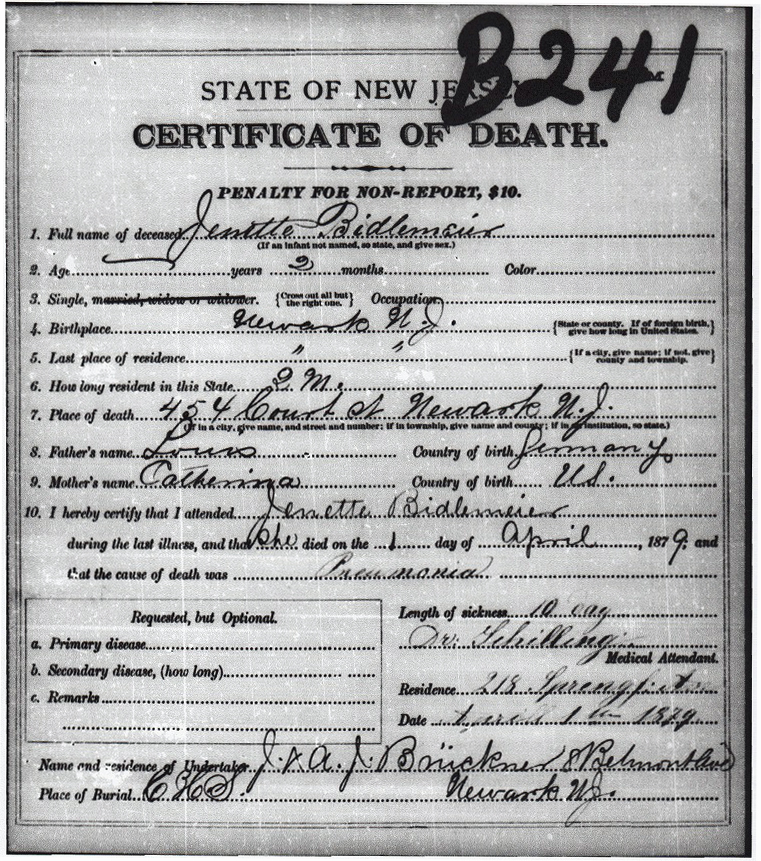 B241
STATE OF NEW JERSEY
CERTIFICATE OF DEATH.
PENALTY FOR NON-REPORT, $10.
1. Full name of deceased Jenette Bidlemeier
(If an infant not named, so state, and give sex.)
2. Age years 2 months Color
3. Single, married, widow or widower. {Cross out all but the right one.} Occupation
4. Birthplace Newark N.J. {State or county. If of foreign birth, give how long in United States.}
5. Last place of residence " " {If a city, give name; if not, give county and township.}
6. How long resident in this State 2 M.
7. Place of death 454 Court st Newark N.J.
(If in a city, give name, and street and number; if in township, give name and county; if in institution, so state.)
8. Father's name Louis Country of birth Germany
9. Mother's name Catherina Country of birth U.S.
10. I hereby certify that I attended Jenette Bidlemeier
during the last illness, and that she died on the 1 day of April, 1879, and
that the cause of death was Pneumonia
Requested, but Optional.
a. Primary disease
b. Secondary disease, (how long)
c. Remarks
Length of sickness 10 day
Dr. Schilling
Medical Attendant.
Residence 218
Date April 1 1879
Name and residence of Undertaker J. & A. J. Brückner 8 Belmont Ave
Place of Burial C.H.S. Newark N.J.